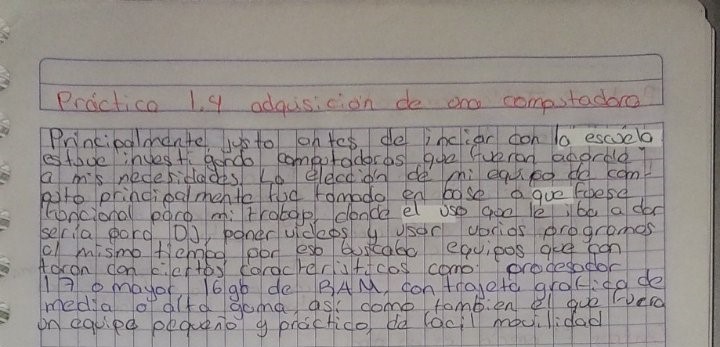 Práctica 1.4 adquisición de una computadora
Principalmente, justo antes de inciar con la escuela
estuve investigando computadoras que fueran acorde
a mis necesidades. La elección de mi equipo de com-
puto principalmente fue tomado en base a que fuese
funcional para mi trabajo, donde el uso que le iba a dar
sería para DJ, poner videos y usar varios programas
al mismo tiempo por eso buscaba equipos que con
taran con ciertos características como: procesador
i7 o mayor, 16gb de RAM, con trajeta grafica de
media o alta gama, así como tambien el que fuera
un equipo pequeño y práctico, de facil movilidad